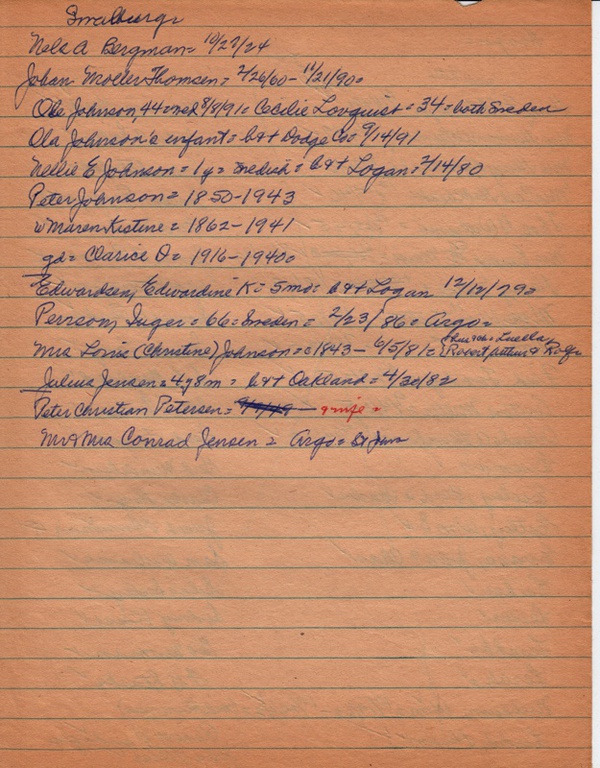 Nels A Bergman = 10/27/24
Johan Moeller Thomsen = 2/26/60 - 11/21/90 =
Ole Johnson, 44 = wed 8/8/91 = Cecilie Lovquist = 34 = both Sweden
Ola Johnson's infant = b&t Dodge Co = 9/14/91
Nellie E Johnson = 1y = Swedish = b&t Logan = 2/14/80
Peter Johnson = 1850-1943
w Maren Kistine = 1862-1941
gd = Clarice O = 1916-1940 =
Edwardsen, Edwardine K = 5 mo = b&t Logan 12/12/79 =
Persson, Inger = 66 = Sweden = 2/23/86 = Argo =
Luella
Mrs Louis (Christine) Johnson = 1843 - 6/5/81 = Robert Arthur & Rolfe
Julius Jensen = 4y8m = b&t Oakland = 4/30/82
Peter Christian Petersen = 9/9/49 - & wife =
Mr & Mrs Conrad Jensen = Argo =